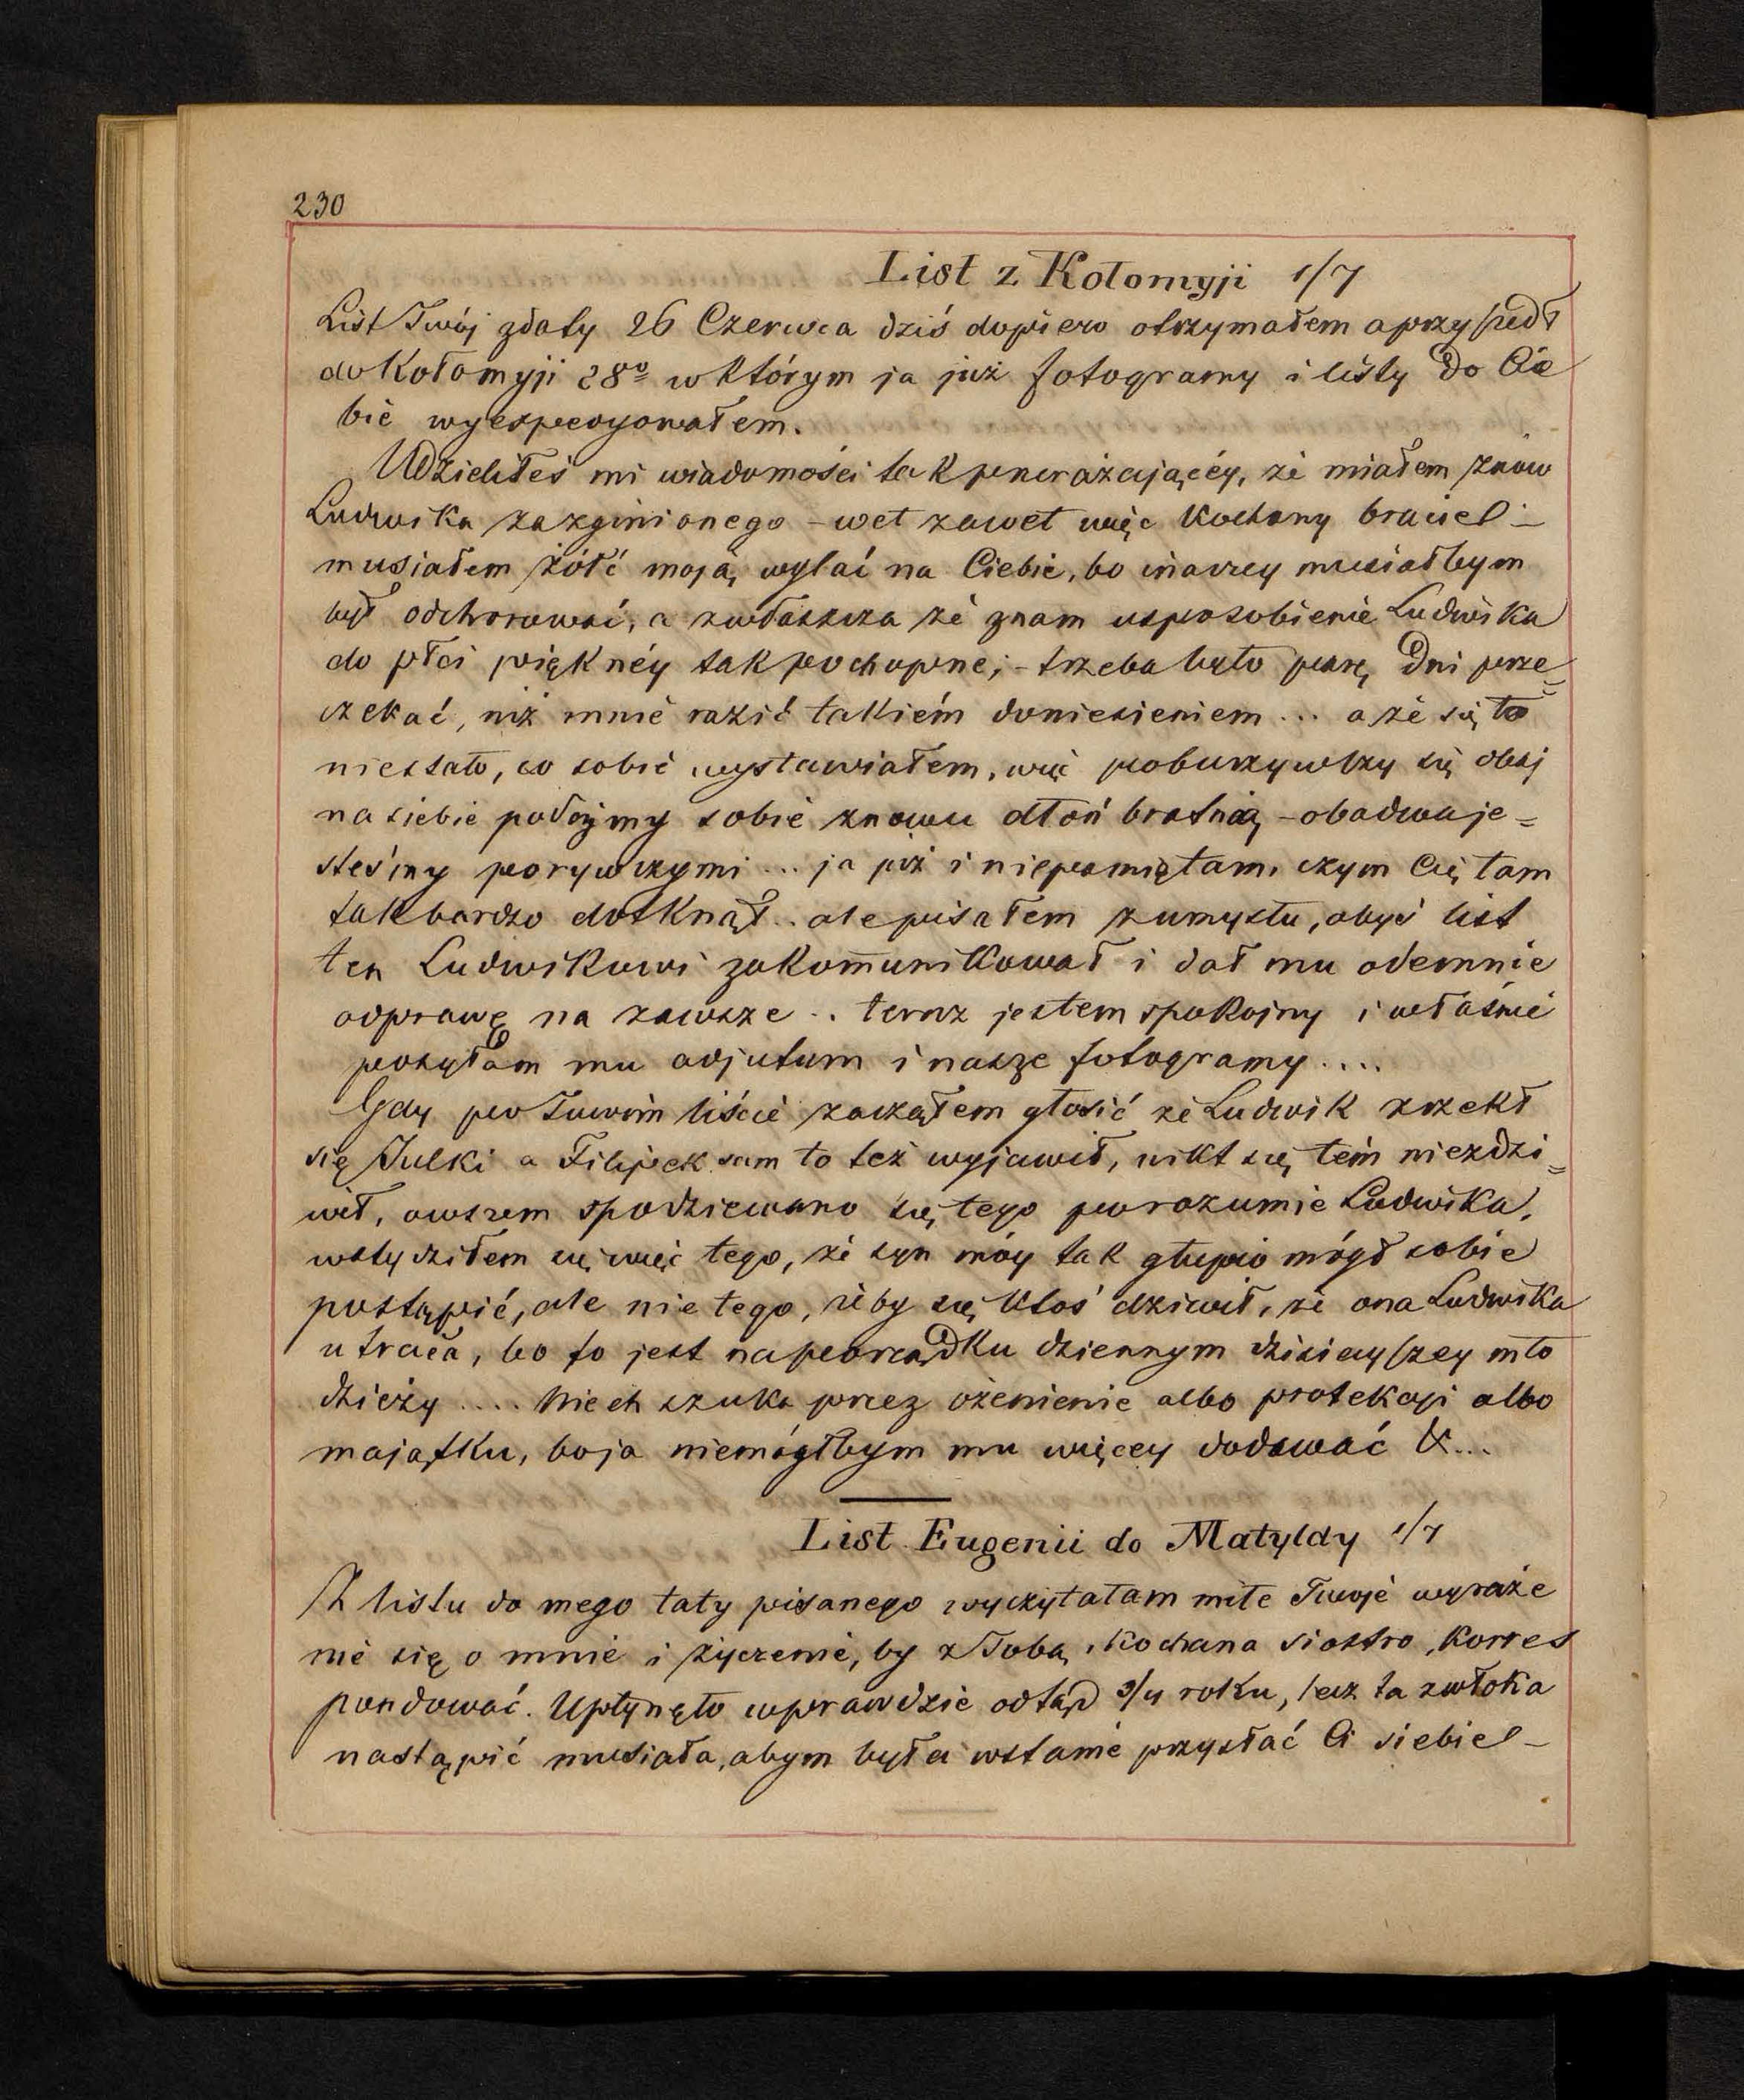 230
List z Kołomyji 1/7
List Twój zdaty 26 Czerwca dziś dopiero otrzymałem a przyszedł
do Kołomyji 28º w którym ja już fotogramy i listy do Cie
bie wyexpedyowałem.
Udzieliłeś mi wiadomości tak przerażającéy, że miałem znów
Ludwika za zginionego – wet zawet więc Kochany bracie! –
musiałem żółć moją wylać na Ciebie, bo inaczey musiałbym
był odchorować, a zwłaszcza że znam usposobienie Ludwika
do płci pięknéy tak pochopne; – trzeba było parę dni prze=
czekać, niż mnie razić takiém doniesieniem ... a że się to
niestało, co sobie wystawiałem, więc poburzywszy się obaj
na siebie podajmy sobie znowu dłoń bratnią – obadwa je=
steśmy porywczymi ... ja już i niepamiętam, czym Cię tam
tak bardzo dotknął .. ale pisałem zumysłu, abyś list
ten Ludwikowi zakomunikował i dał mu odemnie
odprawę na zawsze .. teraz jestem spokojny i właśnie
posyłam mu adjutum i nasze fotogramy ....
Gdy po Twoim liście zacząłem głosić że Ludwik zrzekł
się Julki a Filipek sam to też wyjawił, nikt się tém niezdzi=
wił, owszem spodziewano się tego po rozumie Ludwika,
wstydziłem się więc tego, że syn móy tak głupio mógł sobie
postąpić, ale nie tego, żeby się ktoś dziwił, że ona Ludwika
utraca, bo to jest na porządku dziennym dzisieyszey mło
dzieży .... Niech szuka przez ożenienie albo protekcyi albo
majątku, bo ja niemógłbym mu więcey dodawać &...
List Eugenii do Matyldy 1/7
Z listu do mego taty pisanego wyczytałam miłe Twoje wyraże
nie się o mnie i życzenie, by z Tobą, Kochana siostro, korres
pondować. Upłynęło wprawdzie odtąd 3/4 roku, lecz ta zwłoka
nastąpić musiała, abym była wstanie przysłać Ci siebie! –